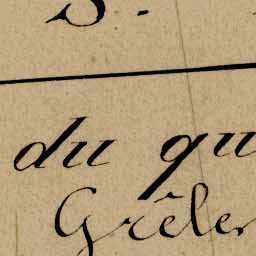 S.
du qu
Grêle